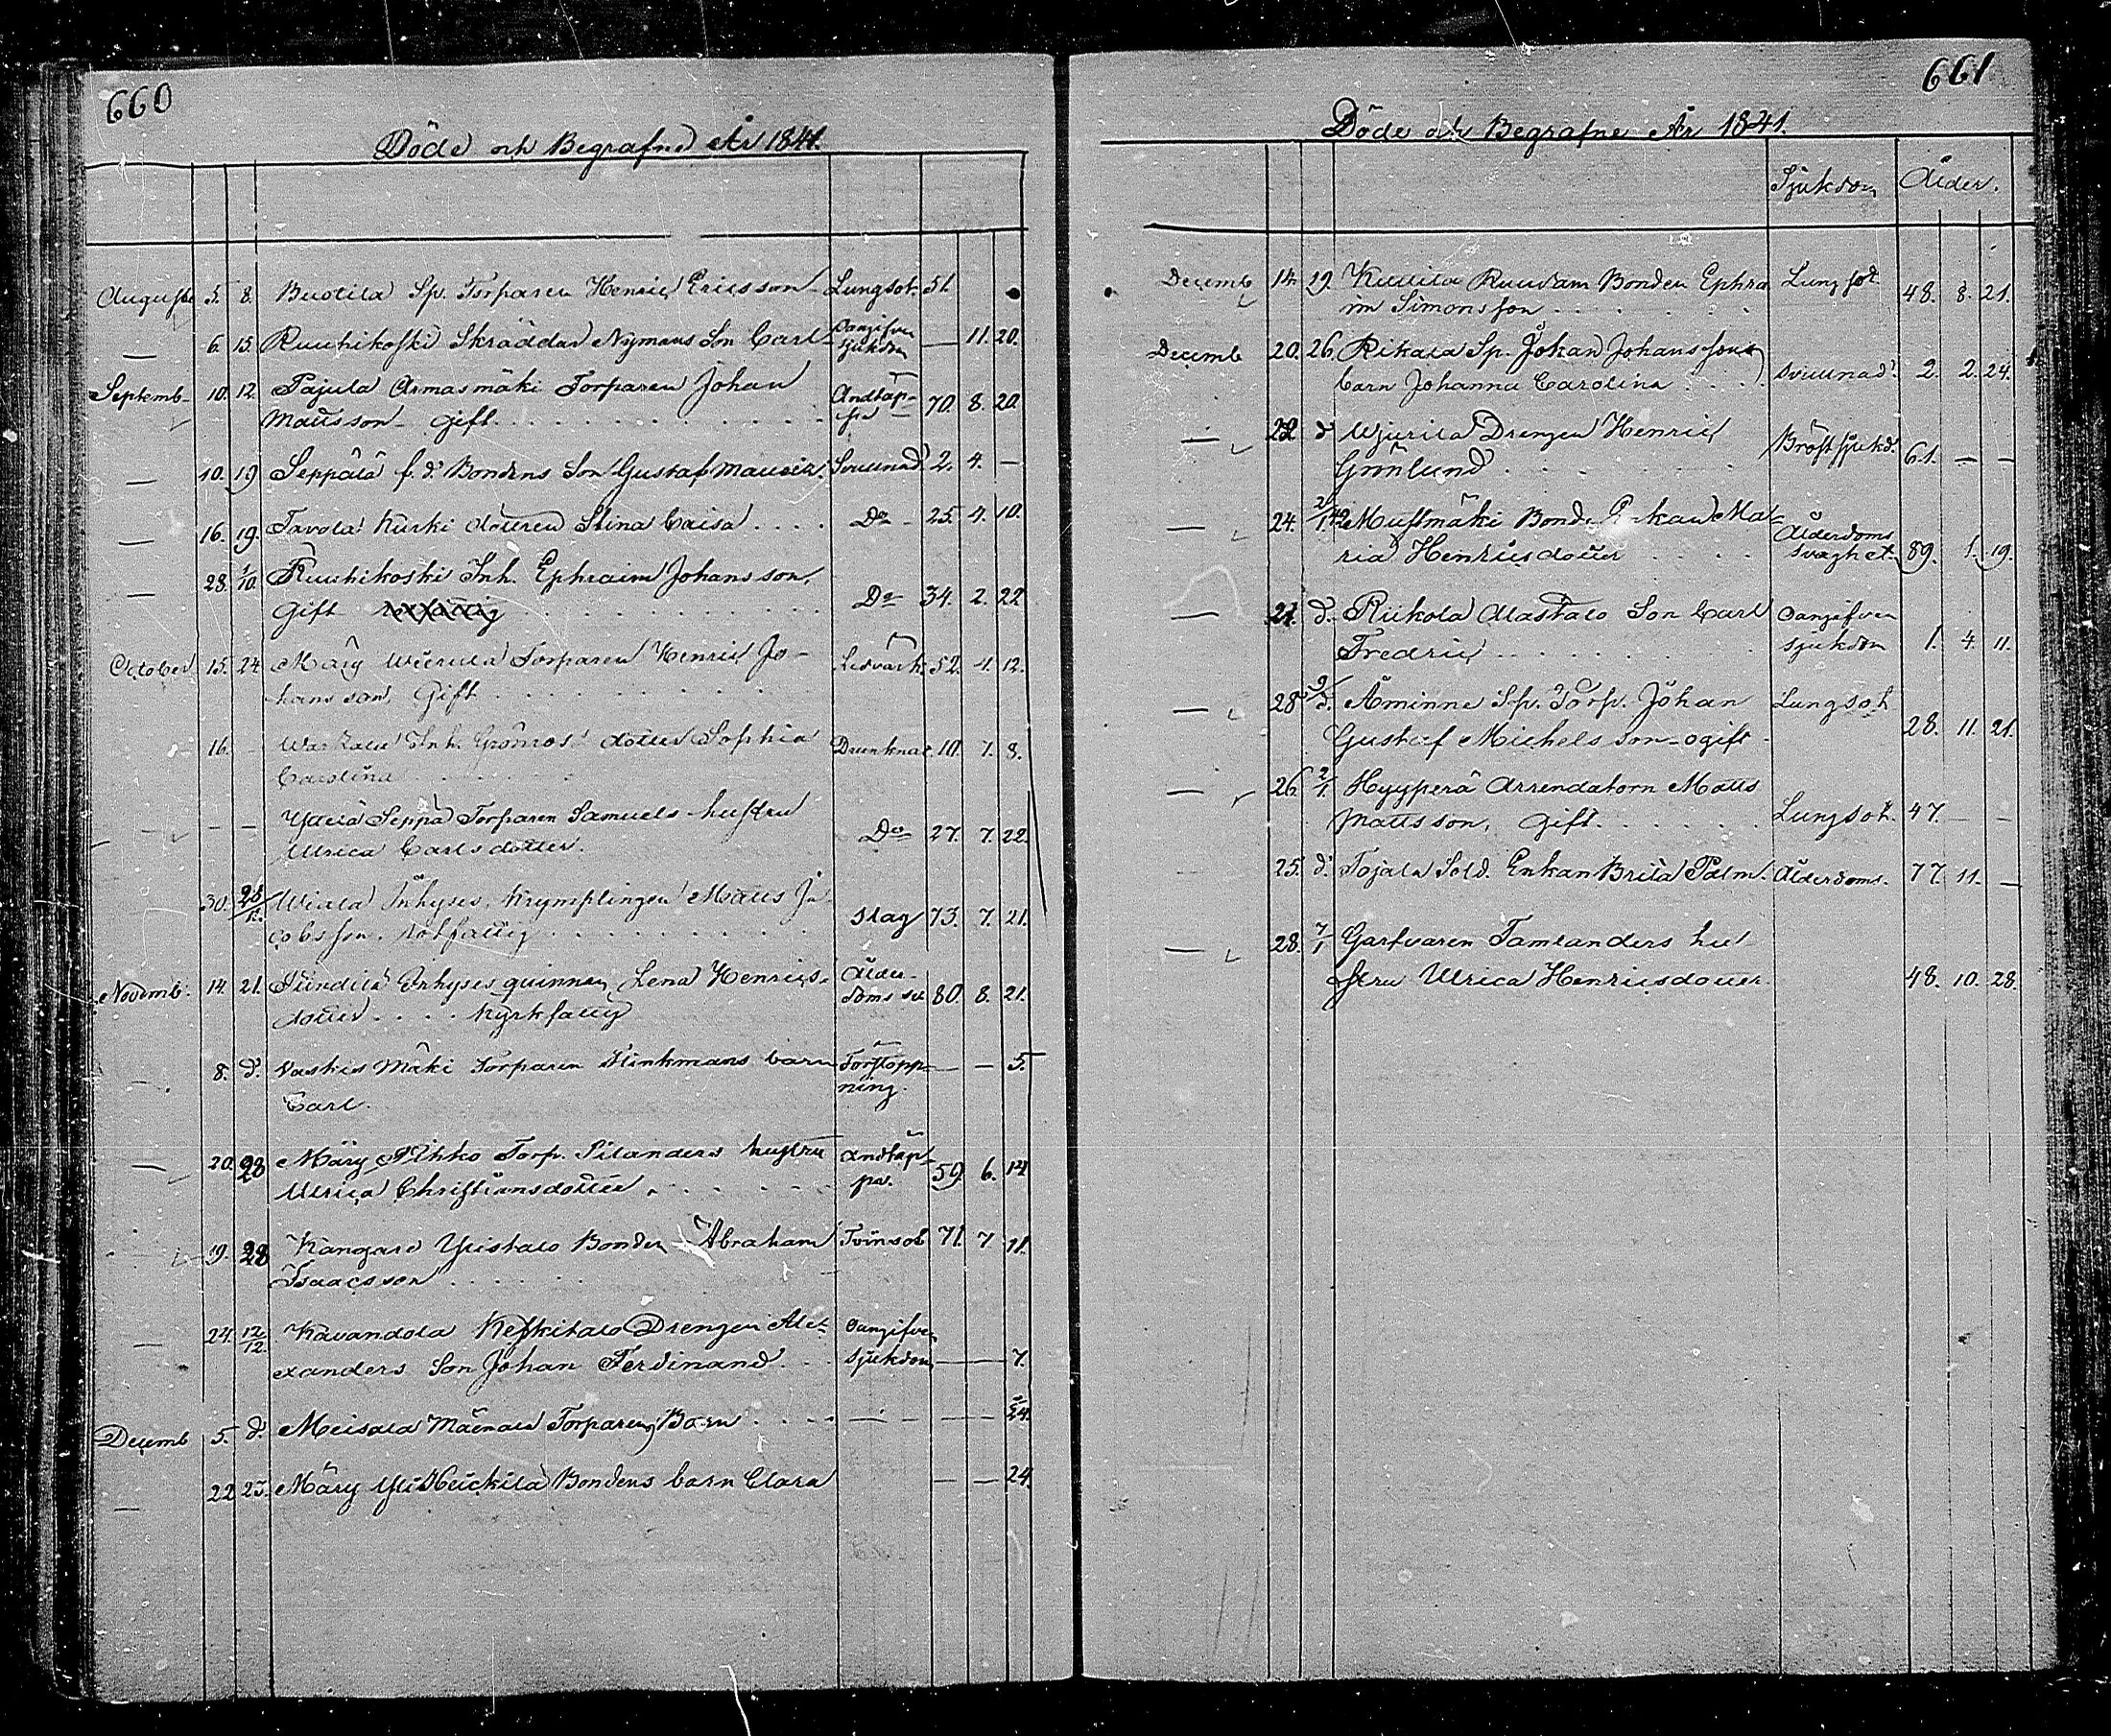 660
Döde och Begrafne År 1841.
Augusti 5. 8. Buotila Sp. Torparen Henric Ericsson Lungsot. 51.
— 6. 15. Ruuhikoski Skräddar Nymans Son Carl Oangifven sjukdom — 11. 20.
Septemb. 10. 12. Pajula Armasmäki Torparen Johan Andtäp-
Mattsson gift. ppa 70. 8. 20.
— 10. 19 Seppälä f. d. Bondens Son Gustaf Mauritz. Svullnad 2. 4. —
— 16. 19. Tavola Kurki dottren Stina Caisa . . . . Do 25. 4. 10.
— 28. 1/10. Ruuhikoski Inh. Ephraim Johansson,
Gift Do 34. 2. 22
October 15. 24. Märy Torparen Henric Jo- Ledvärk. 52. 4. 12.
hansson, Gift
16. — Inh. Grönroos dotter Sophia Drunknat 10. 7. 8.
Carolina
— — — Seppä Torparen Samuels hustru Do 27. 7. 22.
Ulrica Carlsdotter.
30. Inhyses, Krymplingen Matts Ja- slag 73. 7. 21.
cobsson. rotfattig
Novemb. 14. 21. Inhyses quinnan Lena Henrics- Ålder-
dotter . . . . Kyrkfattig doms sv 80. 8. 21.
— 8. d. Vaskis Mäki Torparen Flinkmans barn Förstopp- — — 5.
Carl. ning.
— 20. 28 Märy Pihko Torp. Silanders hustru Andtäp-
Ulrica Christiansdotter. pa. 59. 6. 14
— 19. 28 Kangare Ylistalo Bonden Abraham Tvinsot 71. 7 11.
Isaacsson
— 24. 12/12. Kavandola Keskitalo Drengen Alex- Oangifven
anders Son Johan Ferdinand. sjukdom — — 7.
Decemb 5. d. Meisala Torparens Barn . . . . — — — 24.
— 22 25. Märy Yli Heickilä Bondens barn Clara — — 24.
661
Döde och Begrafne År 1841.
Sjukdom Ålder.
Decemb 14. 19. Kullila Bonden Ephra Lungsot 48. 8. 21.
im Simonsson
Decemb 20. 26. Rikala Sp. Johan Johanssons
barn Johanna Carolina svullnad. 2. 2. 24.
— 22 d Wjurila Drengen Henric Bröstsjukd. 61. — —
Grönlund
— 24. 2/1.42 Mustmäki Bond. Enkan Ma- Ålderdoms
ria Henricsdotter svaghet. 89. 1. 19.
— 21. d. Rukola Alastalo Son Carl Oangifven
Fredric sjukdom 1. 4. 11.
— 28 d. Åminne Sp. Torp. Johan Lungsot
Gustaf Michelsson ogift. 28. 11. 21.
— 26. 2/1. Hyyperä Arrendatorn Matts
Mattsson, Gift. Lungsot. 47. — —
25. d. Tojala Sold. Enkan Brita Palm. Ålderdoms. 77. 11. —
— 28. 7/1 Garfvaren Tamlanders hu-
stru Ulrica Henricsdotter. 48. 10. 28.